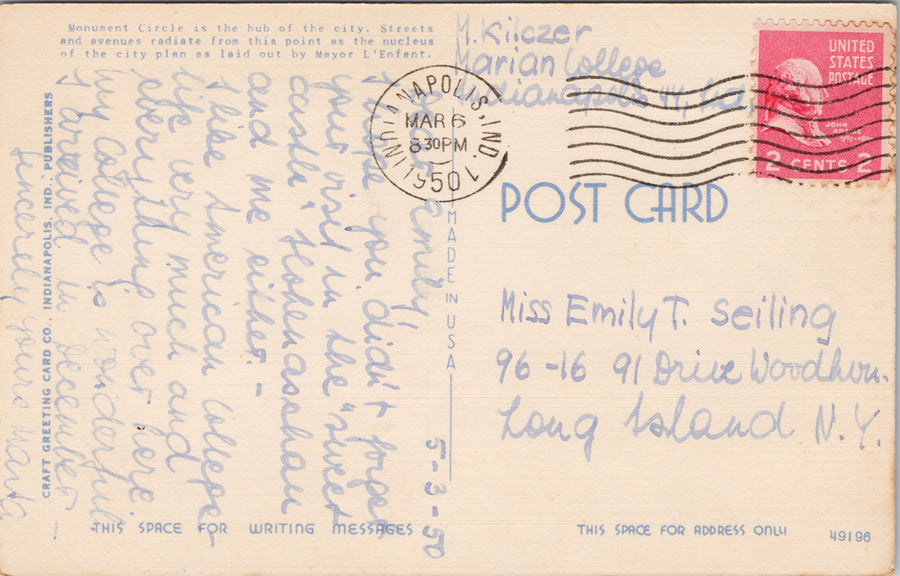 Monument Circle is the hub of the city. Streets
and avenues radiate from this point as the nucleus
of the city plan as laid out by Mayor L'Enfant.
M. Kilczer
Marian College
Indianapolis 44, Ind.
INDIANAPOLIS, IND. 1
MAR 6
8 30 PM
1950
UNITED
STATES
POSTAGE
JOHN
ADAMS
1797-1801
2 CENTS 2
POST CARD
5-3-50
Dear Emily,
I hope you didn't forget
your visit in the "sweet
castle" Hohenaschau
and me either. –
I like American College
life very much and
everything over here
My College is wonderful
I arrived in December –
Sincerely yours Marta
Miss Emily T. Seiling
96-16 91 Drive Woodhvn.
Long Island N.Y.
MADE IN USA
CRAFT GREETING CARD CO., INDIANAPOLIS, IND., PUBLISHERS
THIS SPACE FOR WRITING MESSAGES
THIS SPACE FOR ADDRESS ONLY
49196